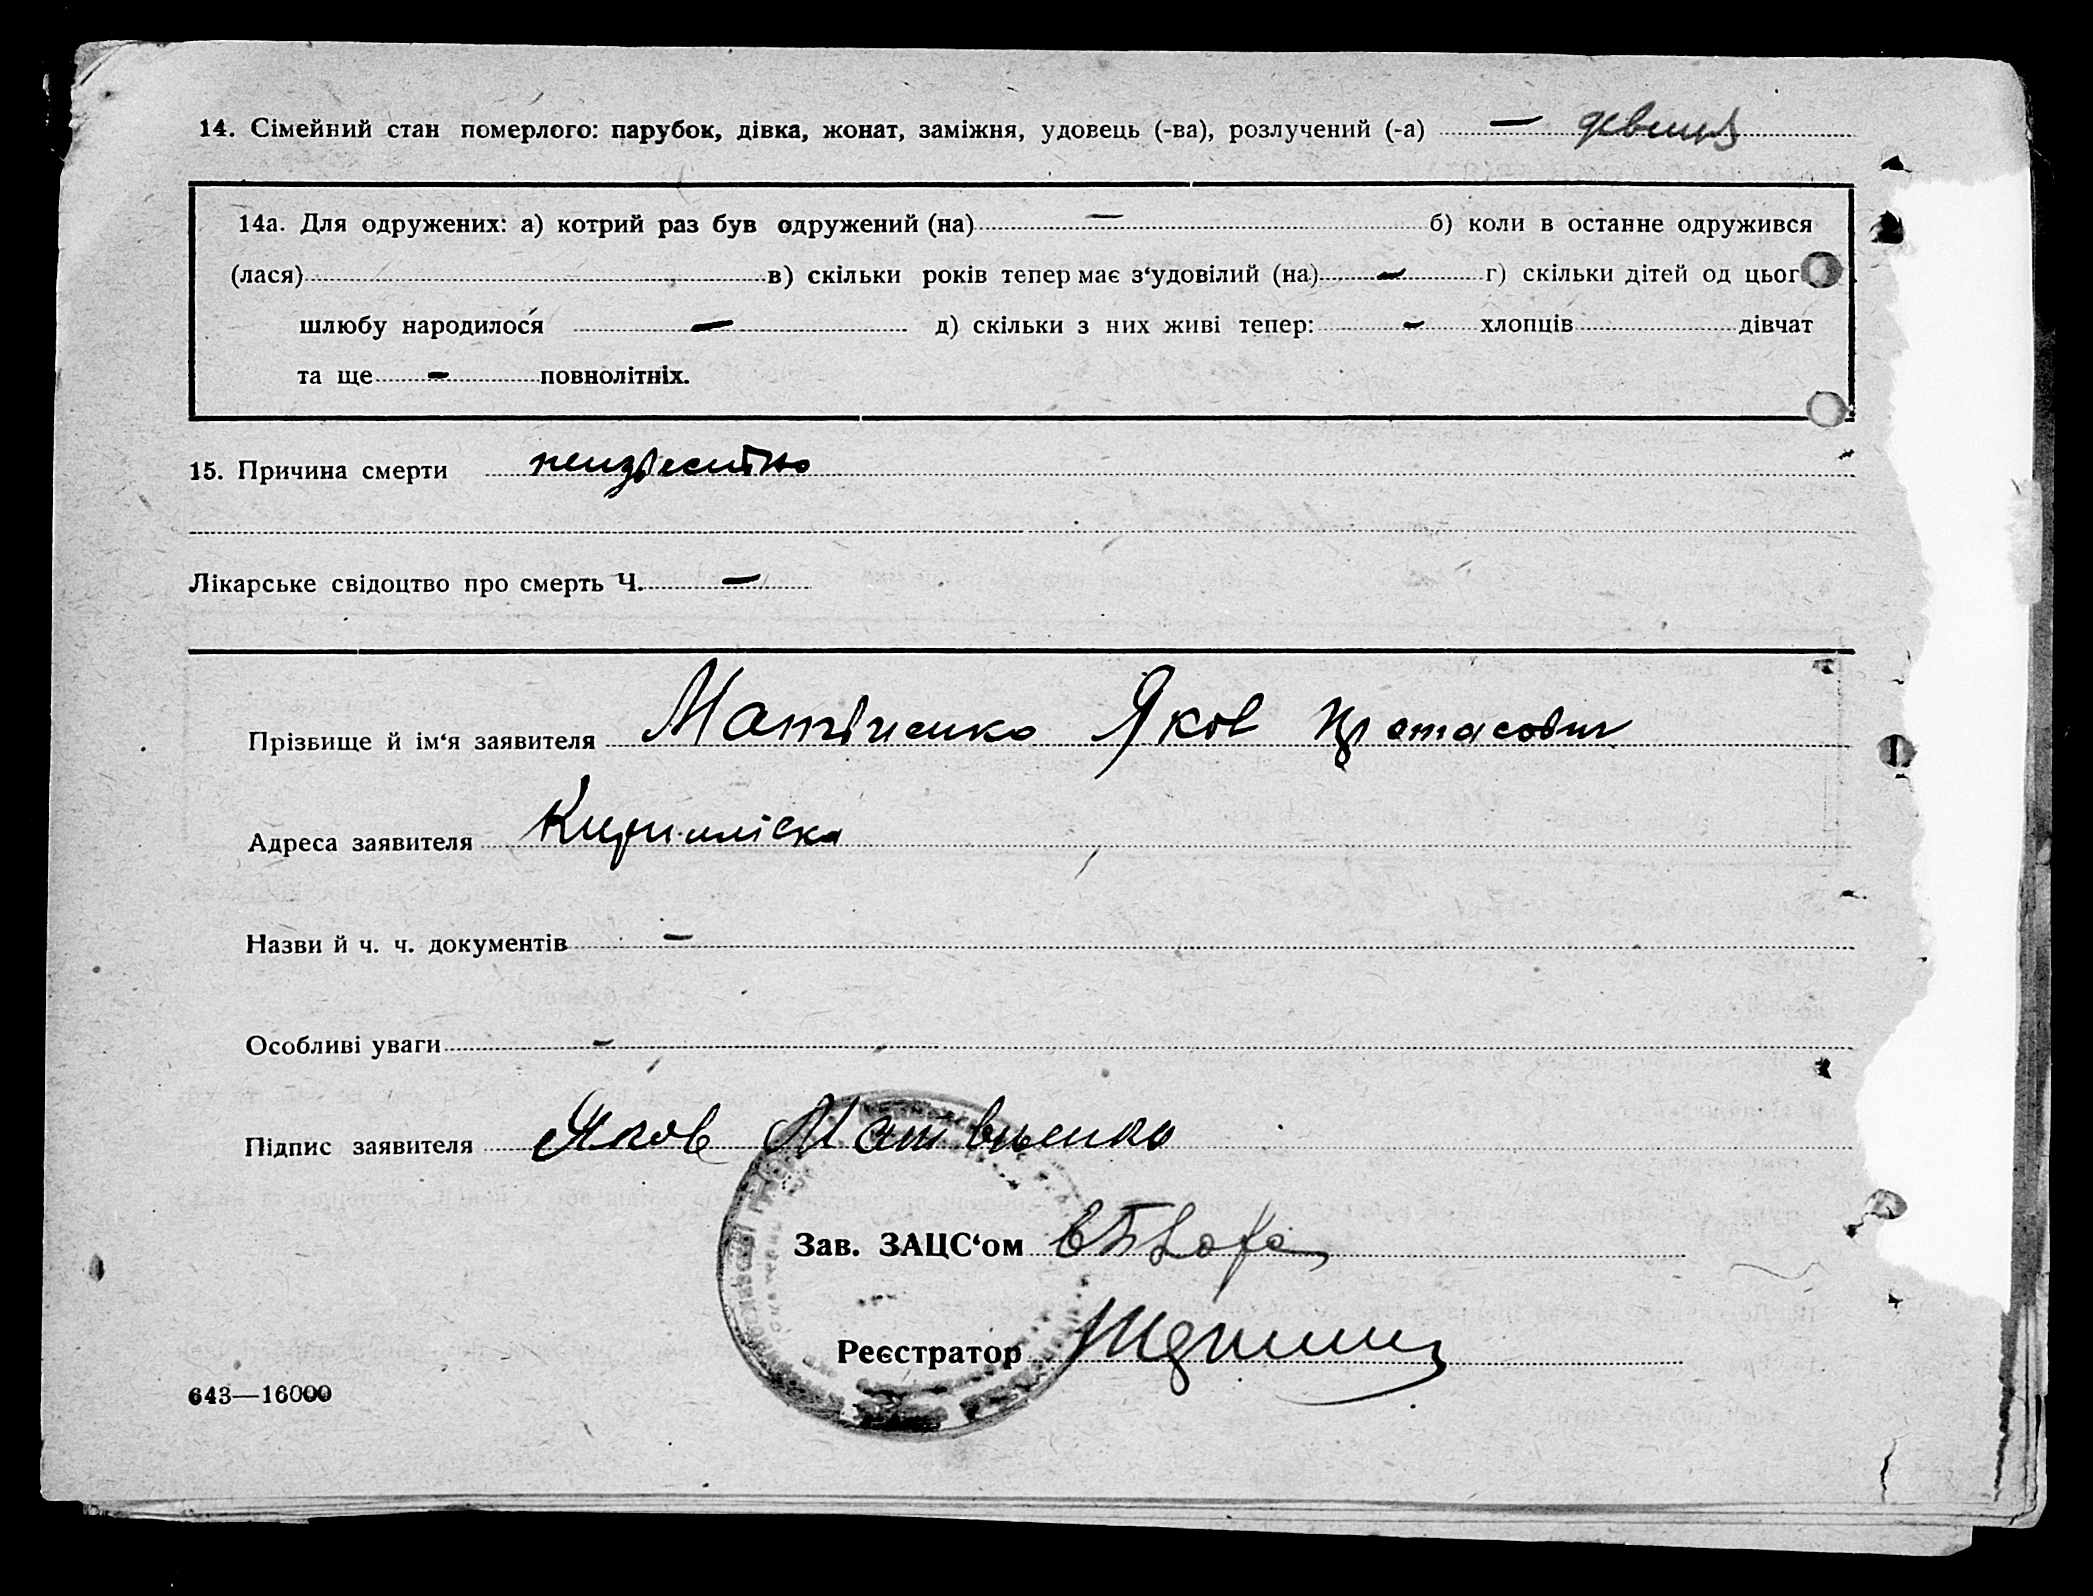 14. Сімейний стан померлого: парубок, дівка, жонат, заміжня, удовець (-ва), розлучений (-а) — девица
14а. Для одружених: а) котрий раз був одружений (на) — б) коли в останне одружився
(лася) в) скільки років тепер має з‘удовілий (на) — г) скільки дітей од цьог
шлюбу народилося — д) скільки з них живі тепер: — хлопців дівчат
та ще — повнолітніх.
15. Причина смерти неизвестно
Лікарське свідоцтво про смерть Ч. —
Прізвище й ім‘я заявителя Матвиенко Яков Протасович
Адреса заявителя
Назви й ч. ч. документів —
Особливі уваги —
Підпис заявителя Яков Матвиенко
Зав. ЗАЦС‘ом
Реєстратор
643—16000